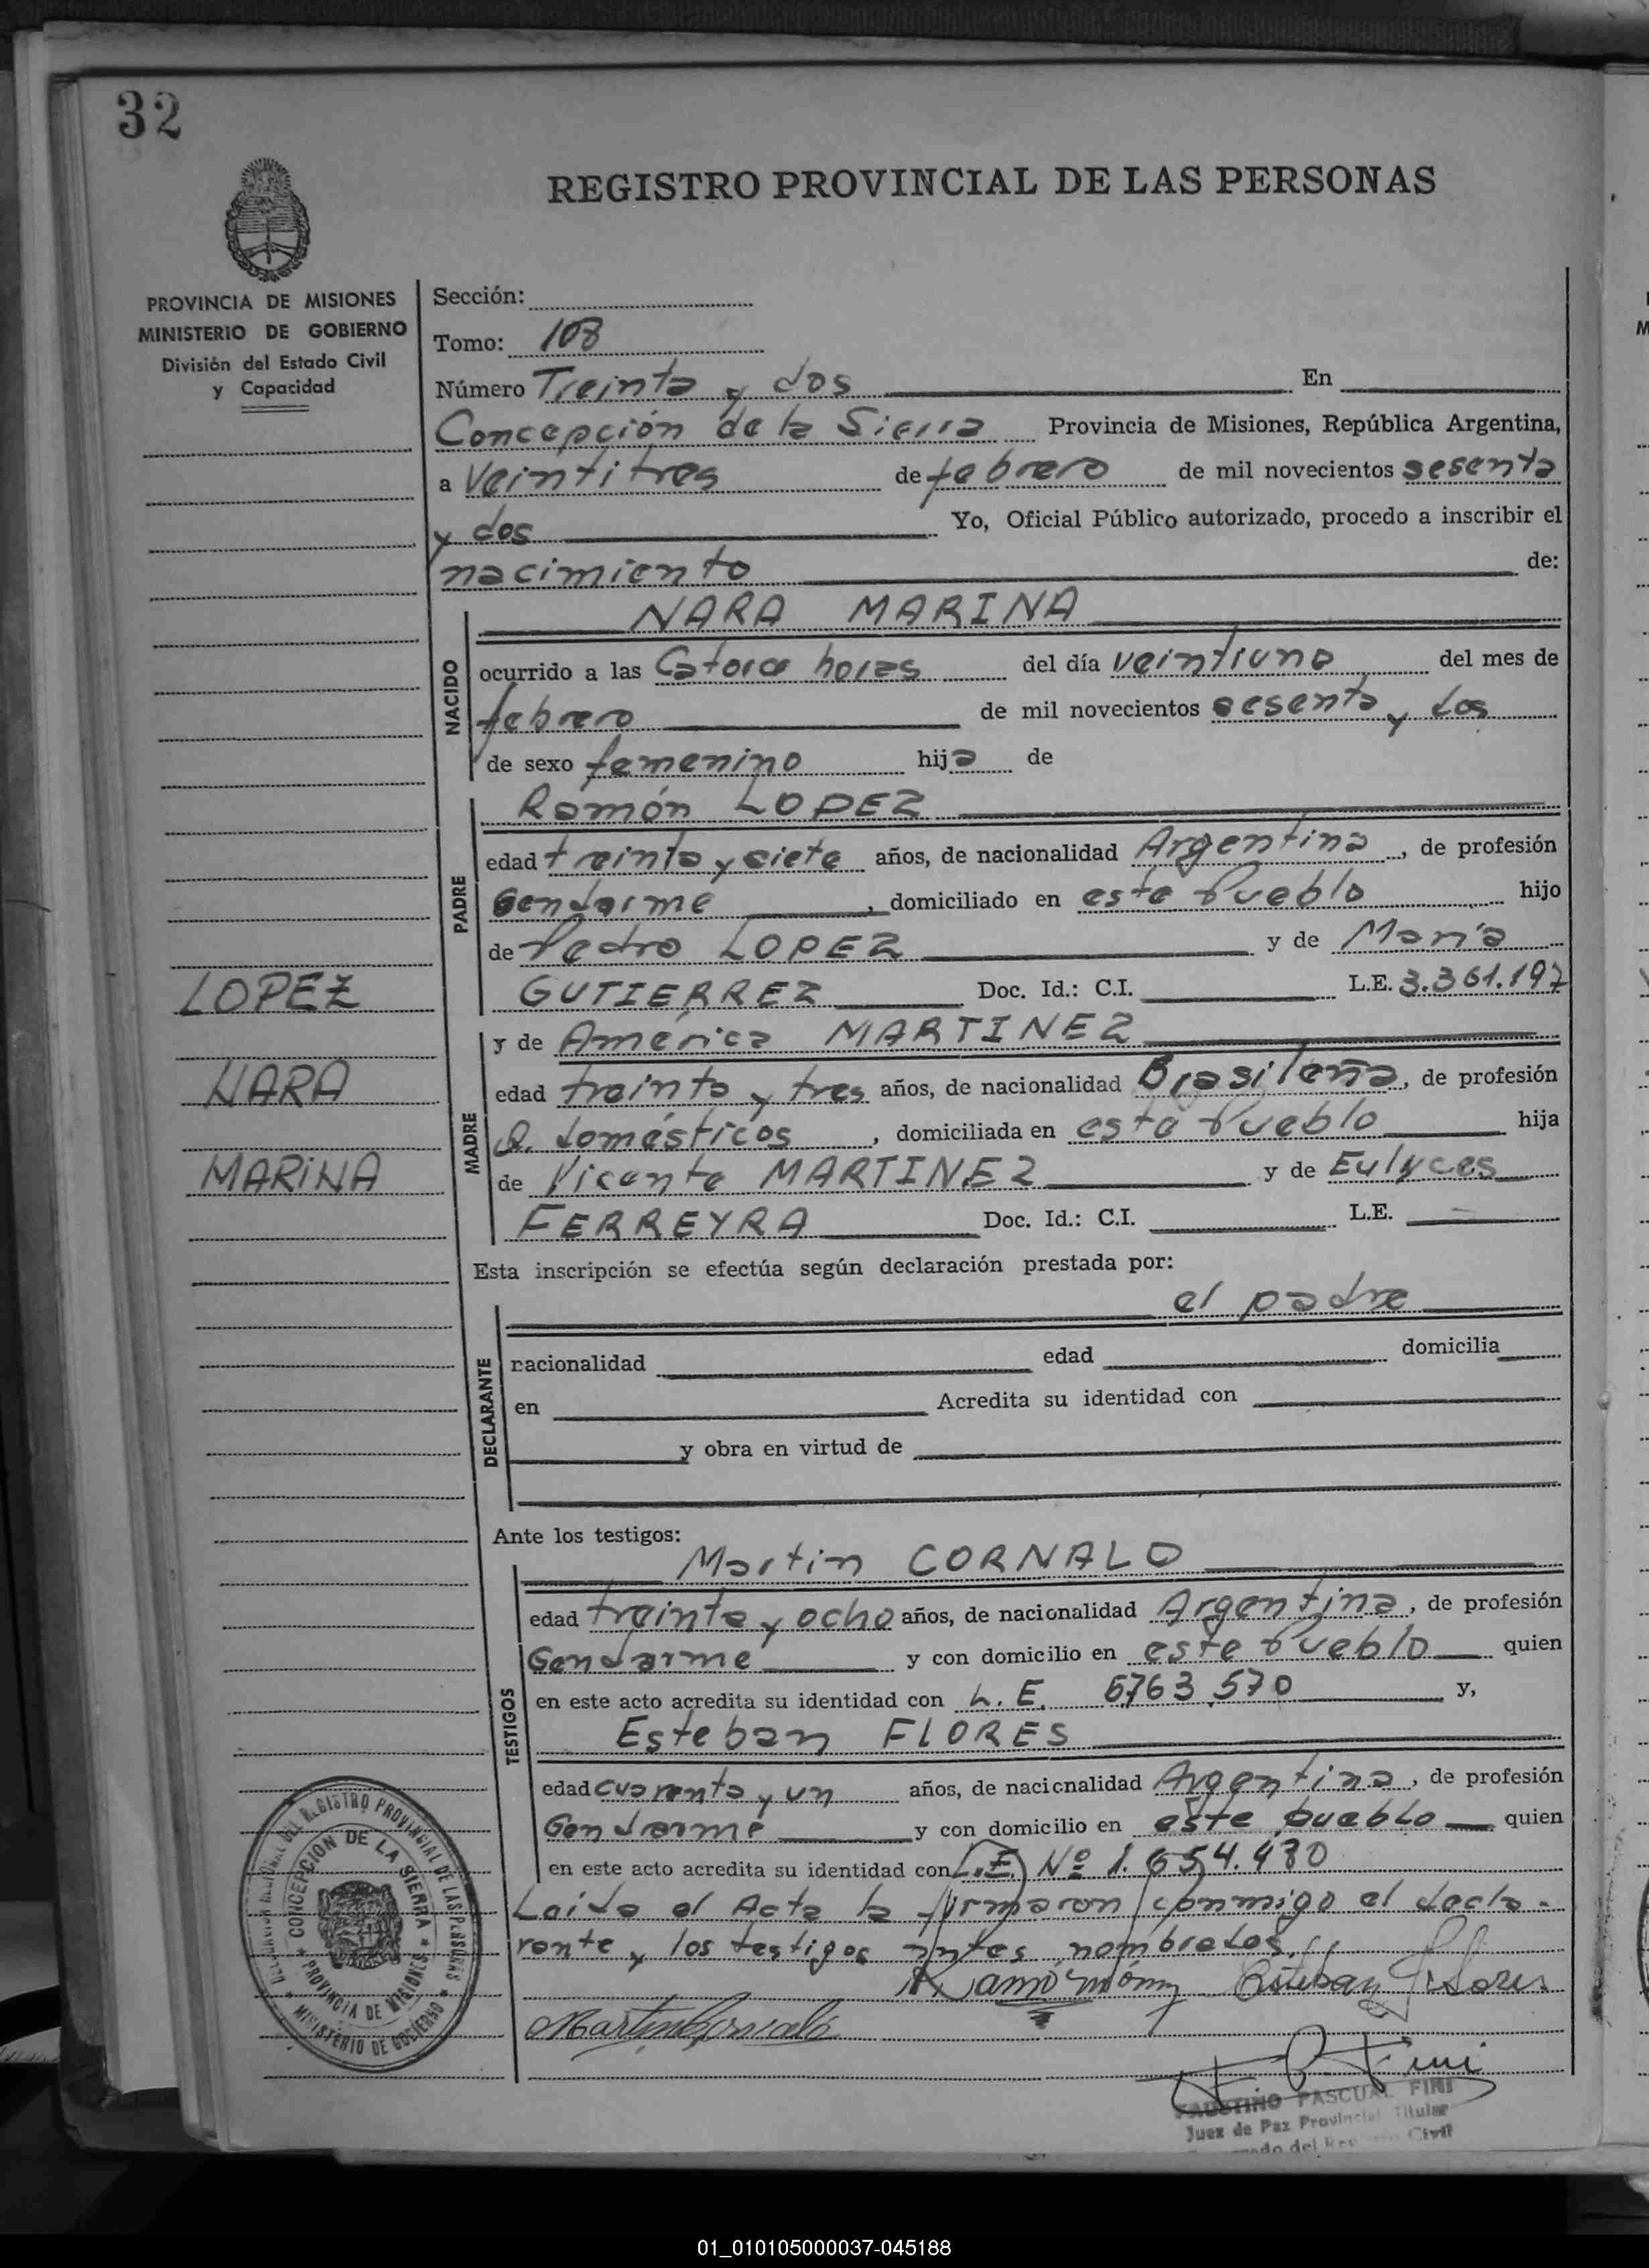 32
REGISTRO PROVINCIAL DE LAS PERSONAS
PROVINCIA DE MISIONES
MINISTERIO DE GOBIERNO
División del Estado Civil
y Capacidad
Sección:
Tomo: 108
Número Treinta y dos En
Concepción de la Sierra Provincia de Misiones, República Argentina,
a Veintitres de febrero de mil novecientos sesenta
y dos Yo, Oficial Público autorizado, procedo a inscribir el
nacimiento de:
NACIDO
NARA MARINA
ocurrido a las Catorce horas del día veintiuno del mes de
febrero de mil novecientos sesenta y dos
de sexo femenino hija de
PADRE
Ramón LOPEZ
edad treinta y siete años, de nacionalidad Argentina, de profesión
Gendarme, domiciliado en este Pueblo hijo
de Pedro LOPEZ y de María
GUTIERREZ Doc. Id.: C.I. L.E. 3.361.197
LOPEZ
NARA
MARINA
MADRE
y de América MARTINEZ
edad treinta y tres años, de nacionalidad Brasileña, de profesión
Q. domésticos, domiciliada en este Pueblo hija
de Vicente MARTINEZ y de Eulyces
FERREYRA Doc. Id.: C.I. L.E.
Esta inscripción se efectúa según declaración prestada por:
el padre
DECLARANTE
nacionalidad edad domicilia
en Acredita su identidad con
y obra en virtud de
Ante los testigos:
TESTIGOS
Martin CORNALO
edad treinta y ocho años, de nacionalidad Argentina, de profesión
Gendarme y con domicilio en este Pueblo quien
en este acto acredita su identidad con L.E. 6763.570 y,
Esteban FLORES
edad cuarenta y un años, de nacionalidad Argentina, de profesión
Gendarme y con domicilio en este pueblo quien
en este acto acredita su identidad con L.E. Nº 1.654.430
Leida el Acta la firmaron conmigo el decla-
rante y los testigos antes nombrados.
Esteban Flores
Martin Cornalo
REGISTRO PROVINCIAL DE LAS PERSONAS
CONCEPCION DE LA SIERRA
PROVINCIA DE MISIONES
MINISTERIO DE GOBIERNO
FAUSTINO PASCUAL FINI
Juez de Paz Provincial Titular
del Civil
01_010105000037-045188